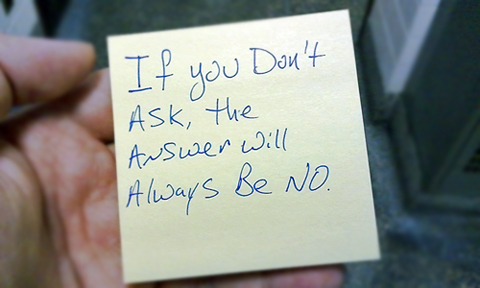 If you Don't
ASK, the
Answer will
Always Be NO.